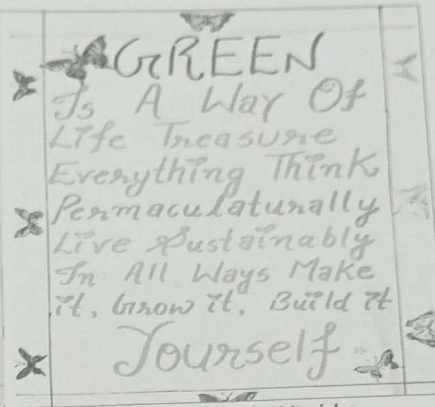 GREEN
Is A Way Of
Life Treasure
Everything Think
Permaculaturally
Live Sustainably
In All Ways Make
it, Grow it, Build it
Yourself